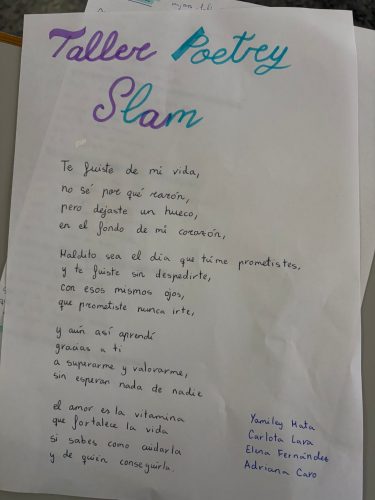 Taller Poetry
Slam
Te fuiste de mi vida,
no sé por qué razón,
pero dejaste un hueco,
en el fondo de mi corazón,
Maldito sea el día que tú me prometistes,
y te fuiste sin despedirte,
con esos mismos ojos,
que prometiste nunca irte,
y aún así aprendí
gracias a ti
a superarme y valorarme,
sin esperar nada de nadie
el amor es la vitamina
que fortalece la vida
si sabes como cuidarla
y de quién conseguirla.
Yamiley Mata
Carlota Lara
Elena Fernández
Adriana Caro